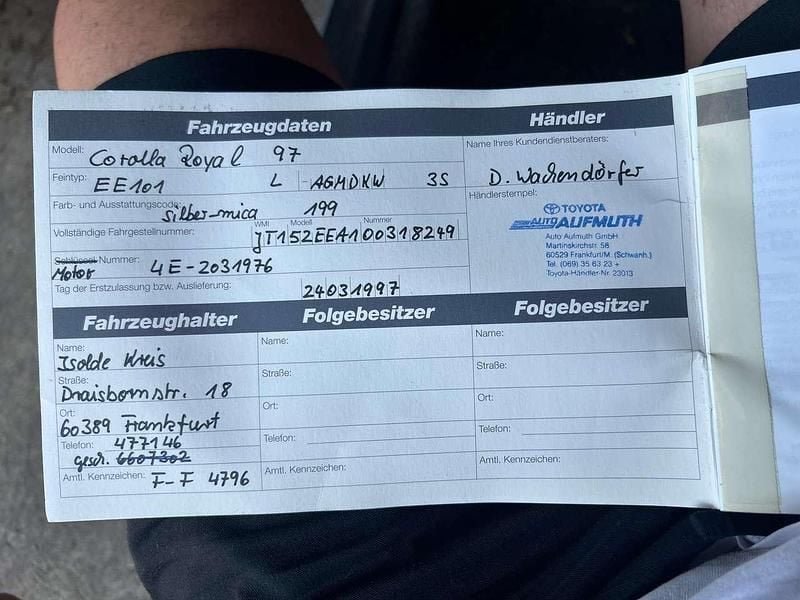 Fahrzeugdaten
Händler
Modell: Corolla Royal 97
Name Ihres Kundendienstberaters:
D. Wachendörfer
Feintyp: EE101 L - AGMDKW 3S
Farb- und Ausstattungscode: silber-mica 199
Händlerstempel:
TOYOTA
AUTO AUFMUTH
Auto Aufmuth GmbH
Martinskirchstr. 58
60529 Frankfurt/M. (Schwanh.)
Tel. (069) 35 63 23 +
Toyota-Händler-Nr. 23013
WMI Modell Nummer
Vollständige Fahrgestellnummer: JT152EEA100318249
Schlüssel-Nummer: 4E-2031976
Motor
Tag der Erstzulassung bzw. Auslieferung: 24031997
Fahrzeughalter
Folgebesitzer
Folgebesitzer
Name:
Isolde Kreis
Straße:
Draisbornstr. 18
Ort:
60389 Frankfurt
Telefon: 477146
gesch. 6607302
Amtl. Kennzeichen: F-F 4796
Name:
Straße:
Ort:
Telefon:
Amtl. Kennzeichen:
Name:
Straße:
Ort:
Telefon:
Amtl. Kennzeichen: